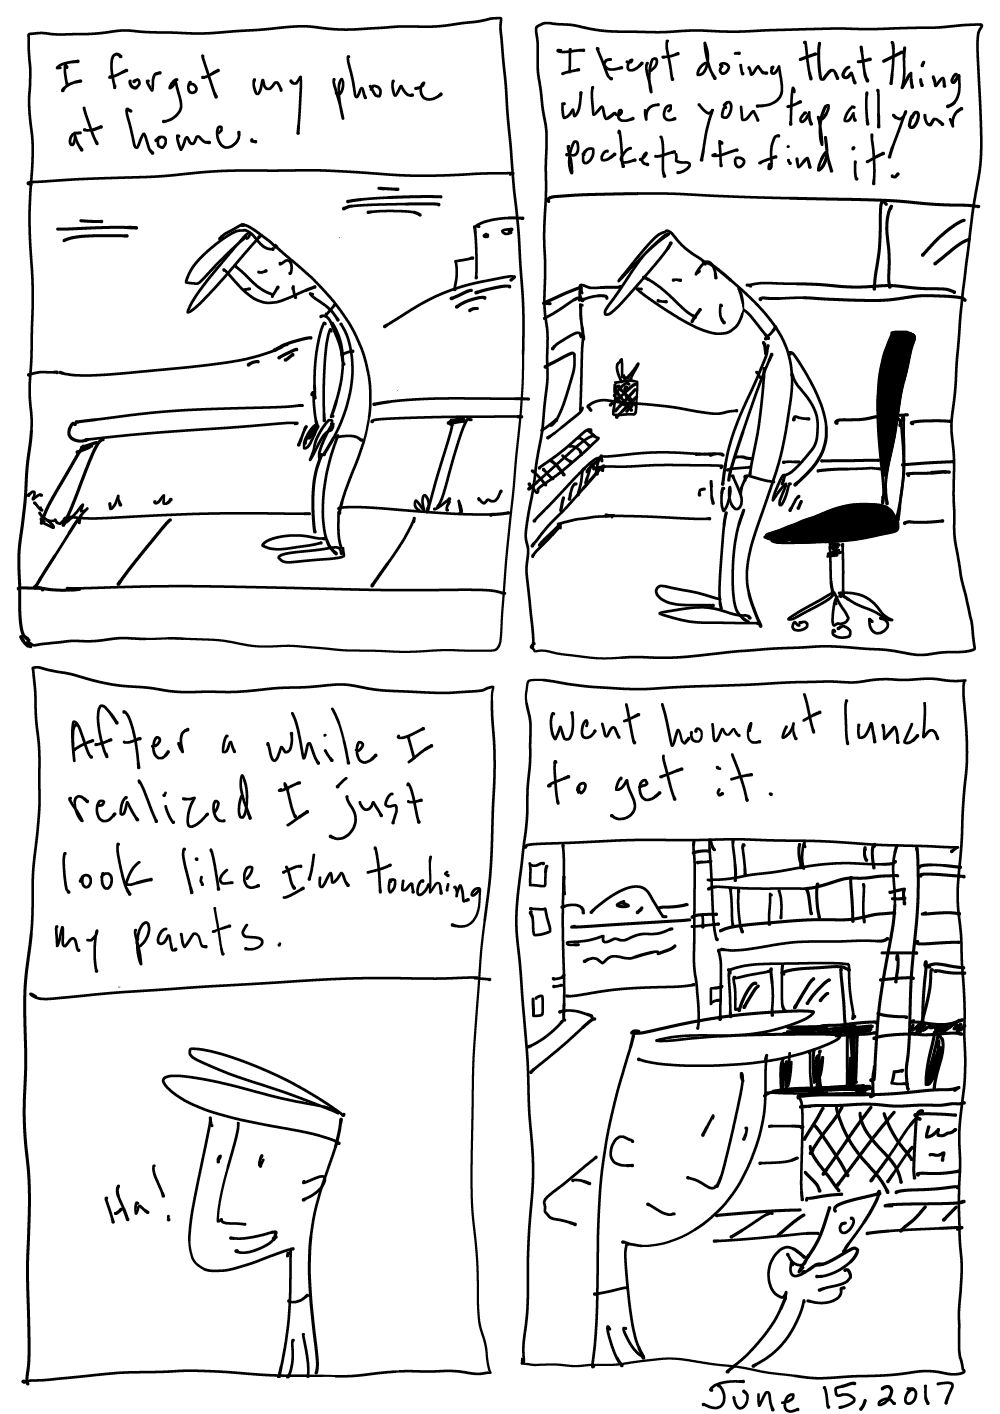 I forgot my phone
at home.
I kept doing that thing
where you tap all your
pockets to find it.
After a while I
realized I just
look like I'm touching
my pants.
Ha!
Went home at lunch
to get it.
June 15, 2017